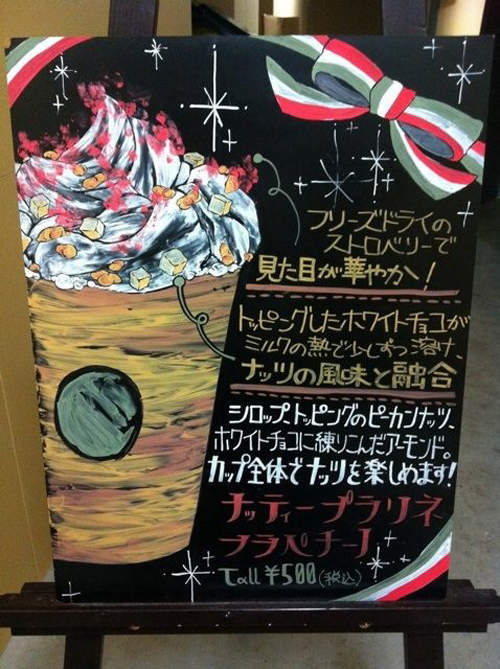 フリーズドライの
ストロベリーで
見た目が華やか!
トッピングしたホワイトチョコが
ミルクの熱で少しずつ溶け、
ナッツの風味と融合
シロップ、トッピングのピーカンナッツ、
ホワイトチョコに練りこんだアーモンド。
カップ全体でナッツを楽しめます!
ナッティープラリネ
フラペチーノ
Tall ¥500(税込)